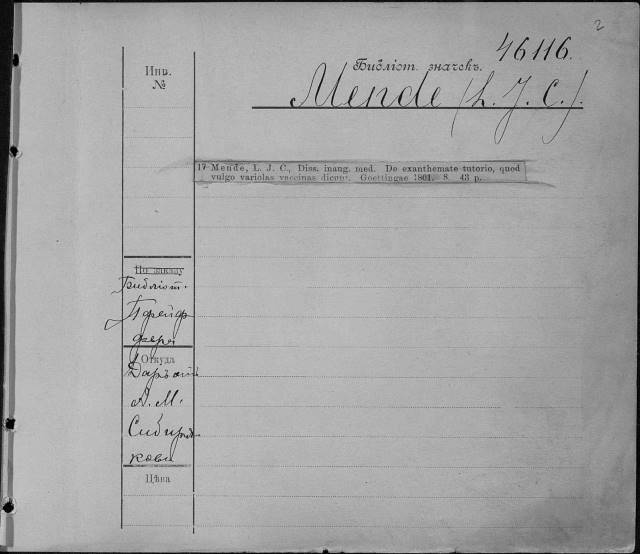 2
46116.
Инв.
№
Библіот. значекъ.
Mende (L. J. C.).
17 Mende, L. J. C., Diss. inaug. med. De exanthemate tutorio, quod
vulgo variolas vaccinas dicunt. Goettingae 1801. 8. 43 p.
По заказу
Библіот.
Пфейф
фера
Откуда
Даръ отъ
А. М.
Сибиря
кова
Цѣна